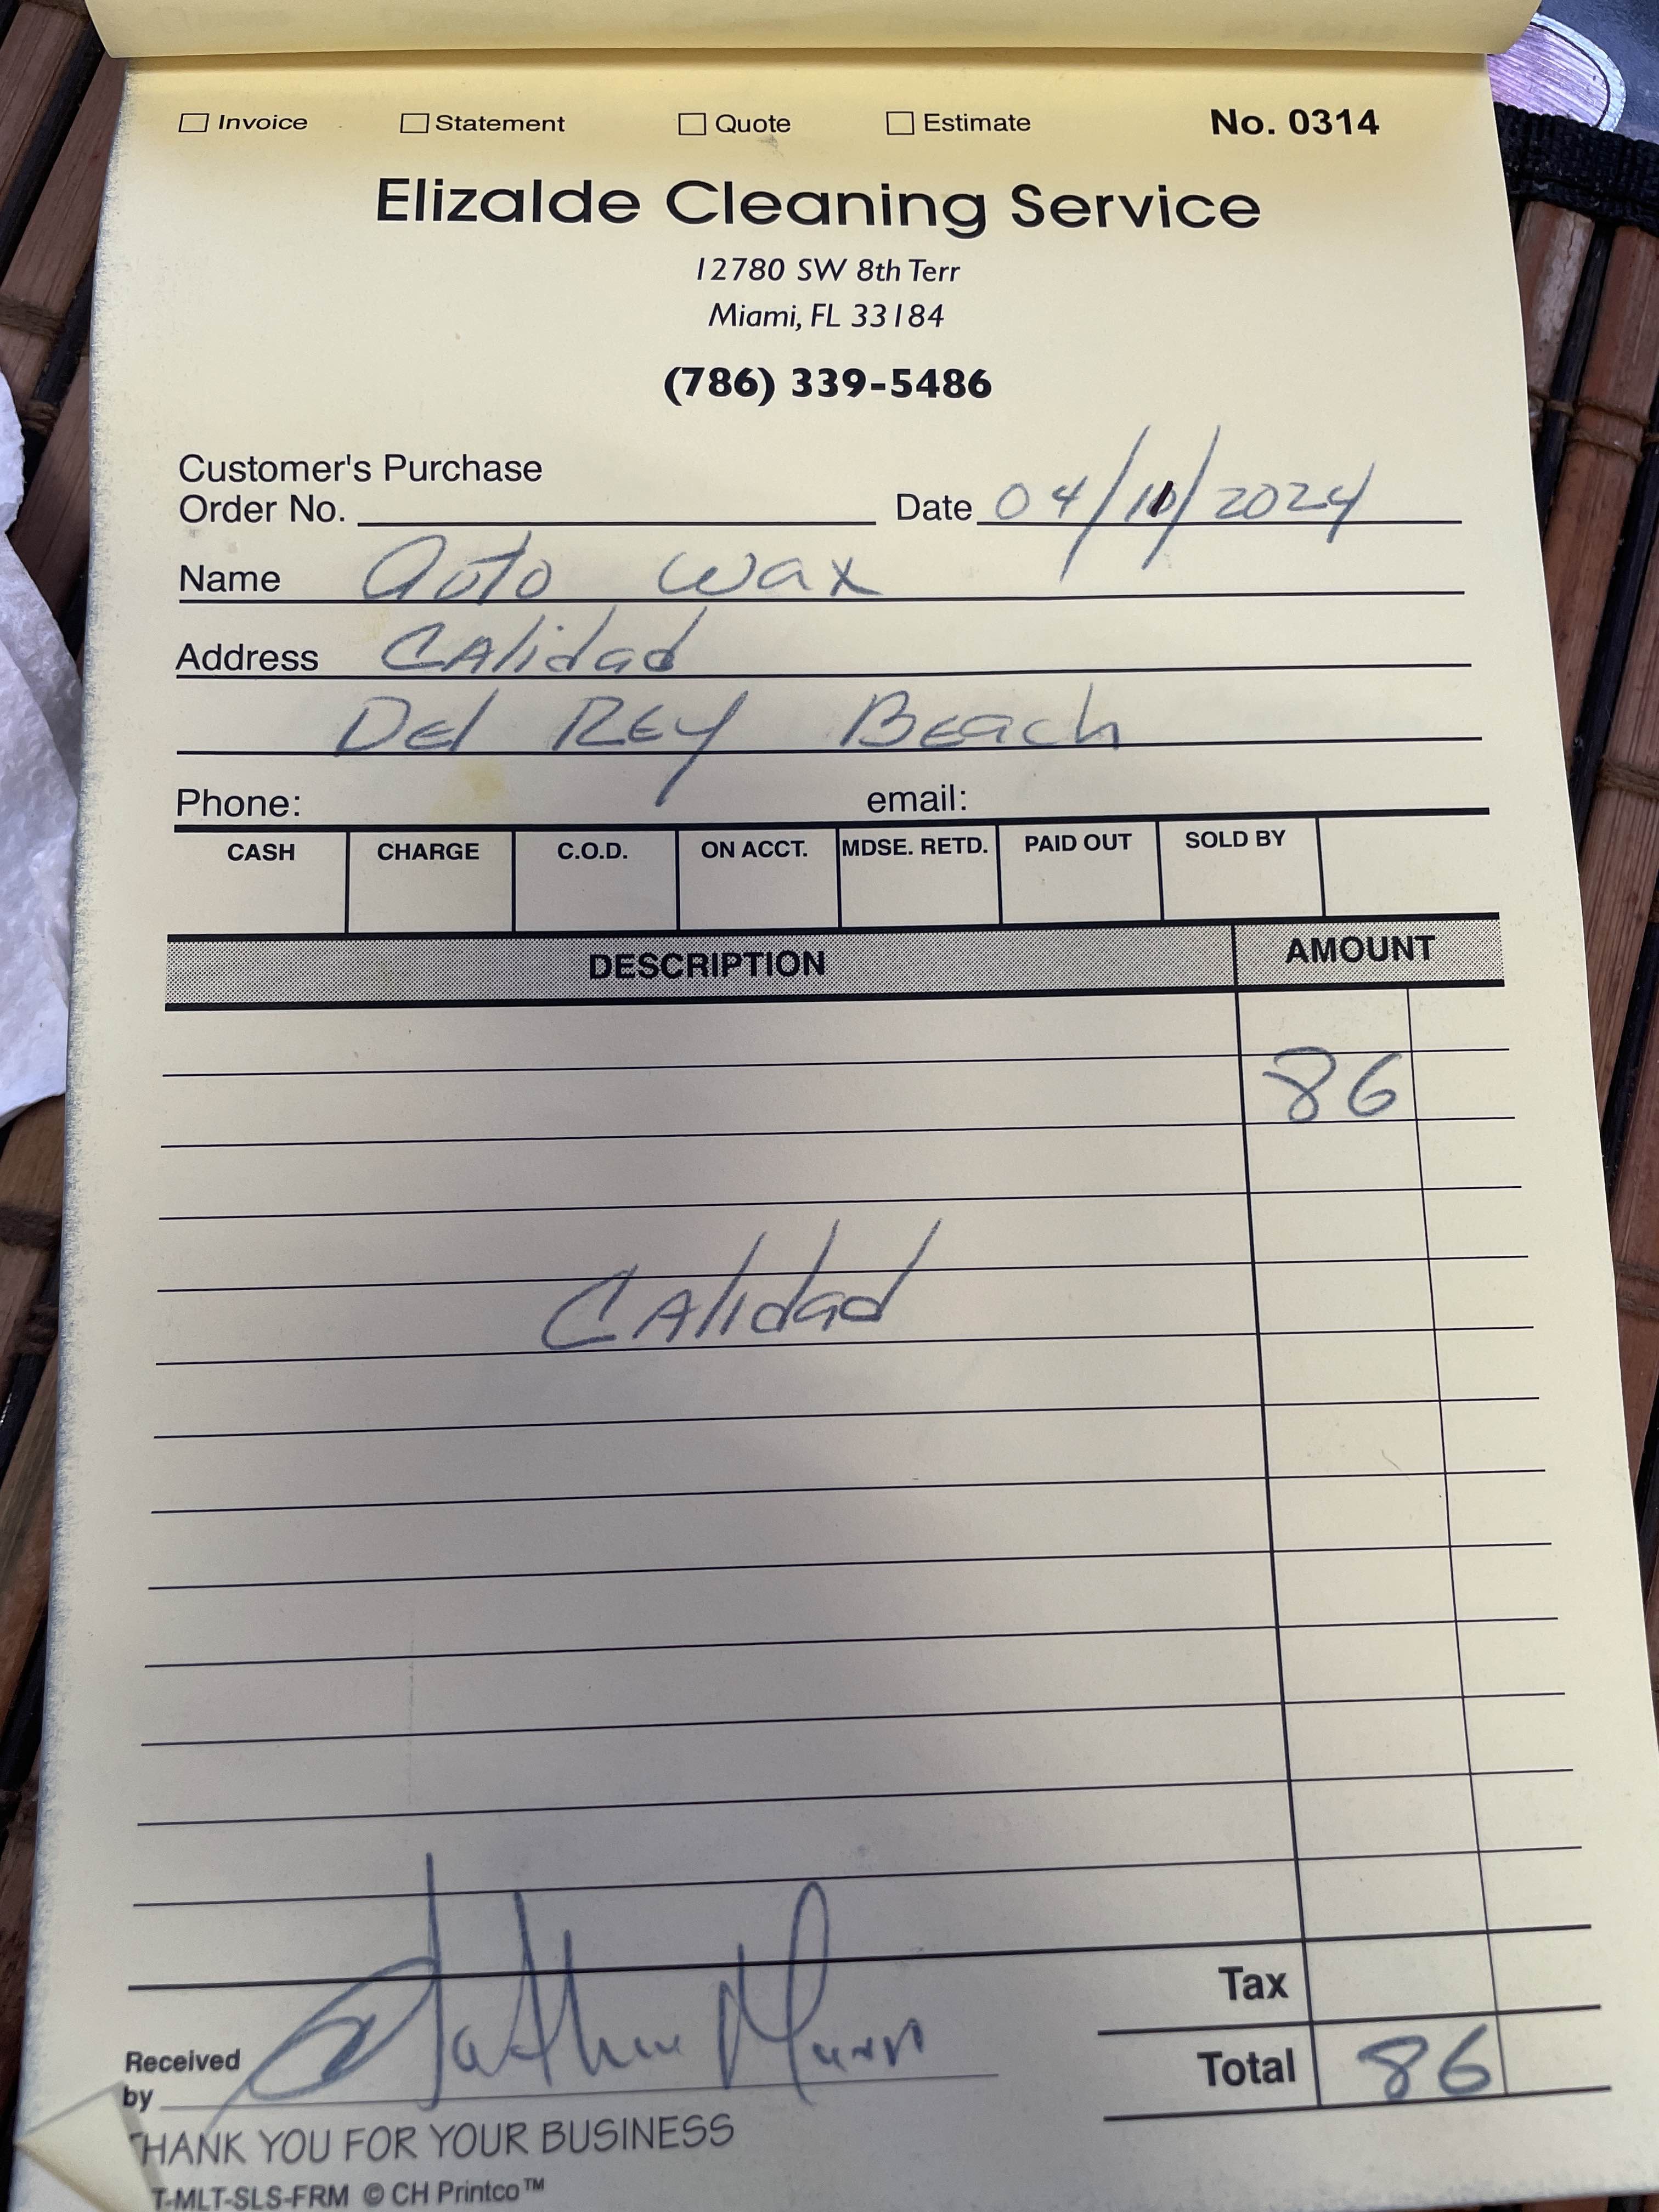 Invoice Statement Quote Estimate No. 0314
Elizalde Cleaning Service
12780 SW 8th Terr
Miami, FL 33184
(786) 339-5486
Customer's Purchase
Order No. Date 04/10/2024
Name Auto Wax
Address Calidad
Del Rey Beach
Phone: email:
CASH CHARGE C.O.D. ON ACCT. MDSE. RETD. PAID OUT SOLD BY
DESCRIPTION AMOUNT
86
Calidad
Tax
Received
by
Total 86
THANK YOU FOR YOUR BUSINESS
T-MLT-SLS-FRM © CH Printco™